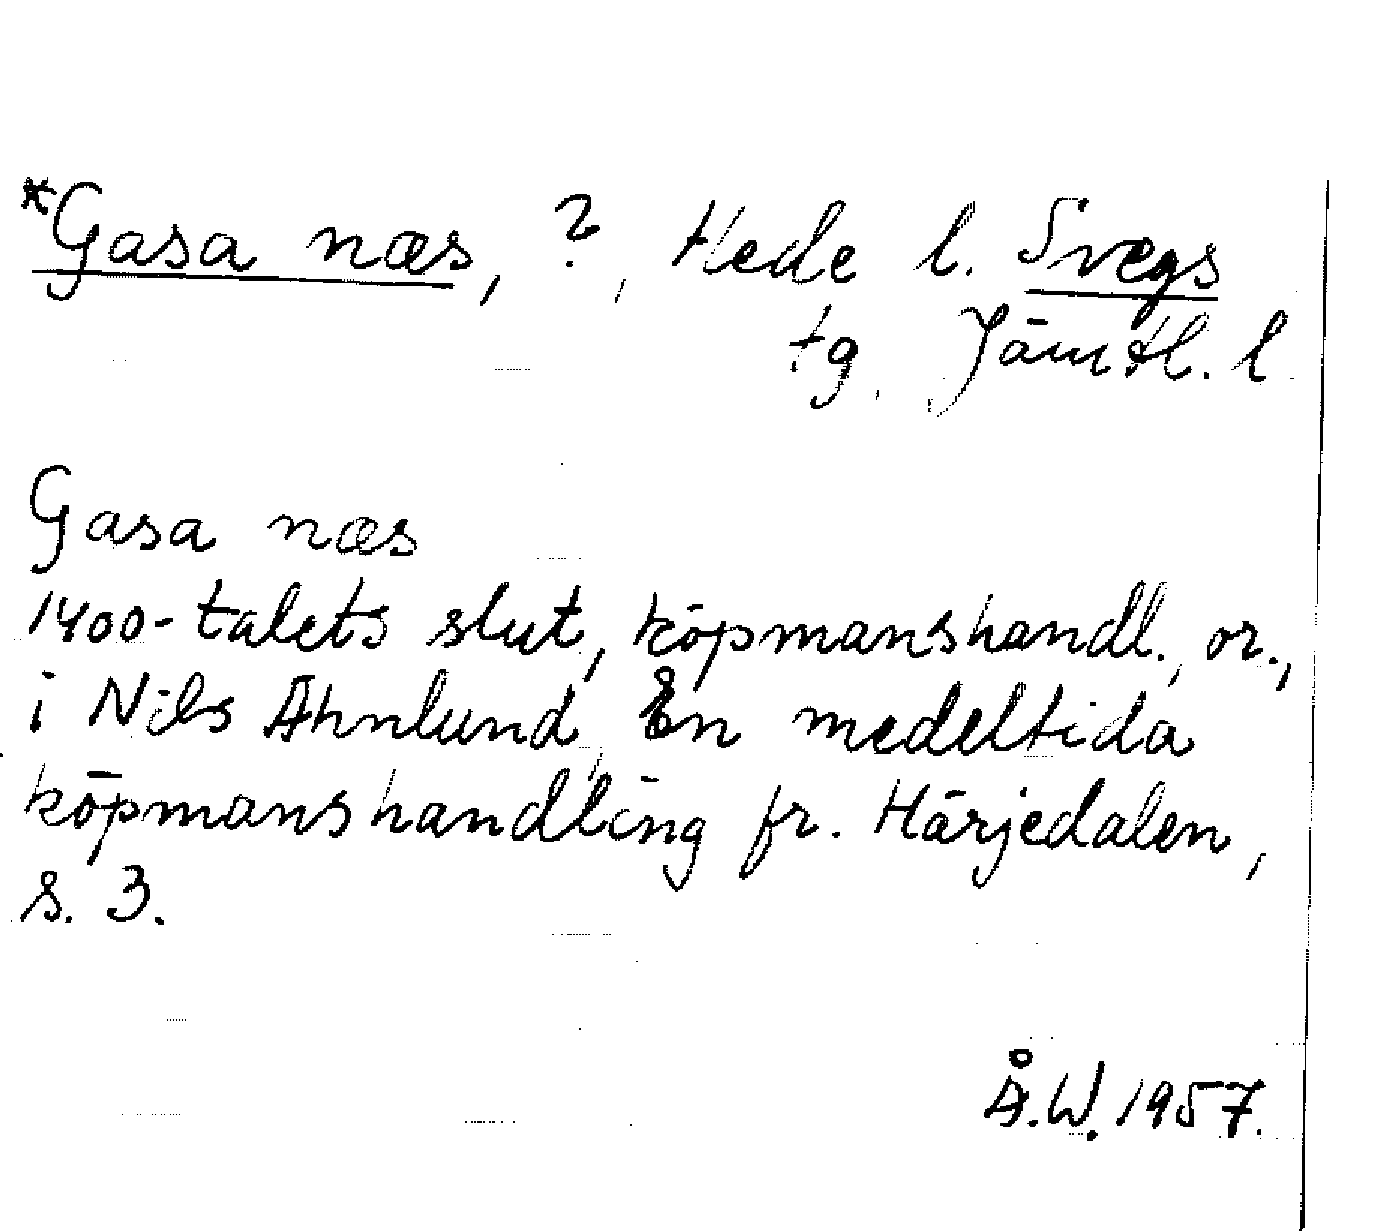 *Gasa næs, ?, Hede l. Svegs
tg, Jämtl. l.
Gasa næs
1400-talets slut, köpmanshandl., or.,
i Nils Ahnlund, En medeltida
köpmanshandling fr. Härjedalen,
s. 3.
Å.W. 1957.